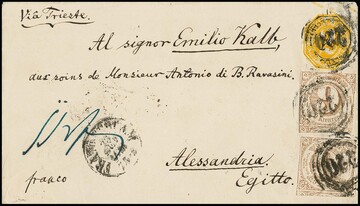 Via Trieste.
Al signor Emilio Kalb,
aux soins de Monsieur Antonio di B. Ravasini.
Alessandria
Egitto.
franco
220
220
220